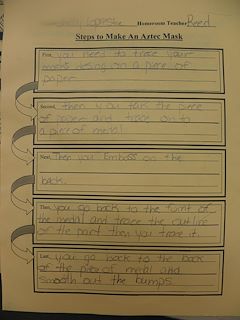 Homeroom Teacher Reed
Steps to Make An Aztec Mask
First, you need to trace your
masks desing on a piece of
paper
Second, then you tak the piece
of paper and trace on to
a piece of metal
Next, Then you Emboss on the
back.
Then, you go back to the funt of
the medal and trace the outline
of the part then you trace it.
Last, you go back to the back
of the piece of medal and
smooth out the bumps